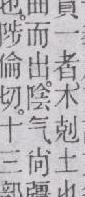 貫一者、木剋土也
曲而出。陰气尚彊
也。陟倫切。十三部